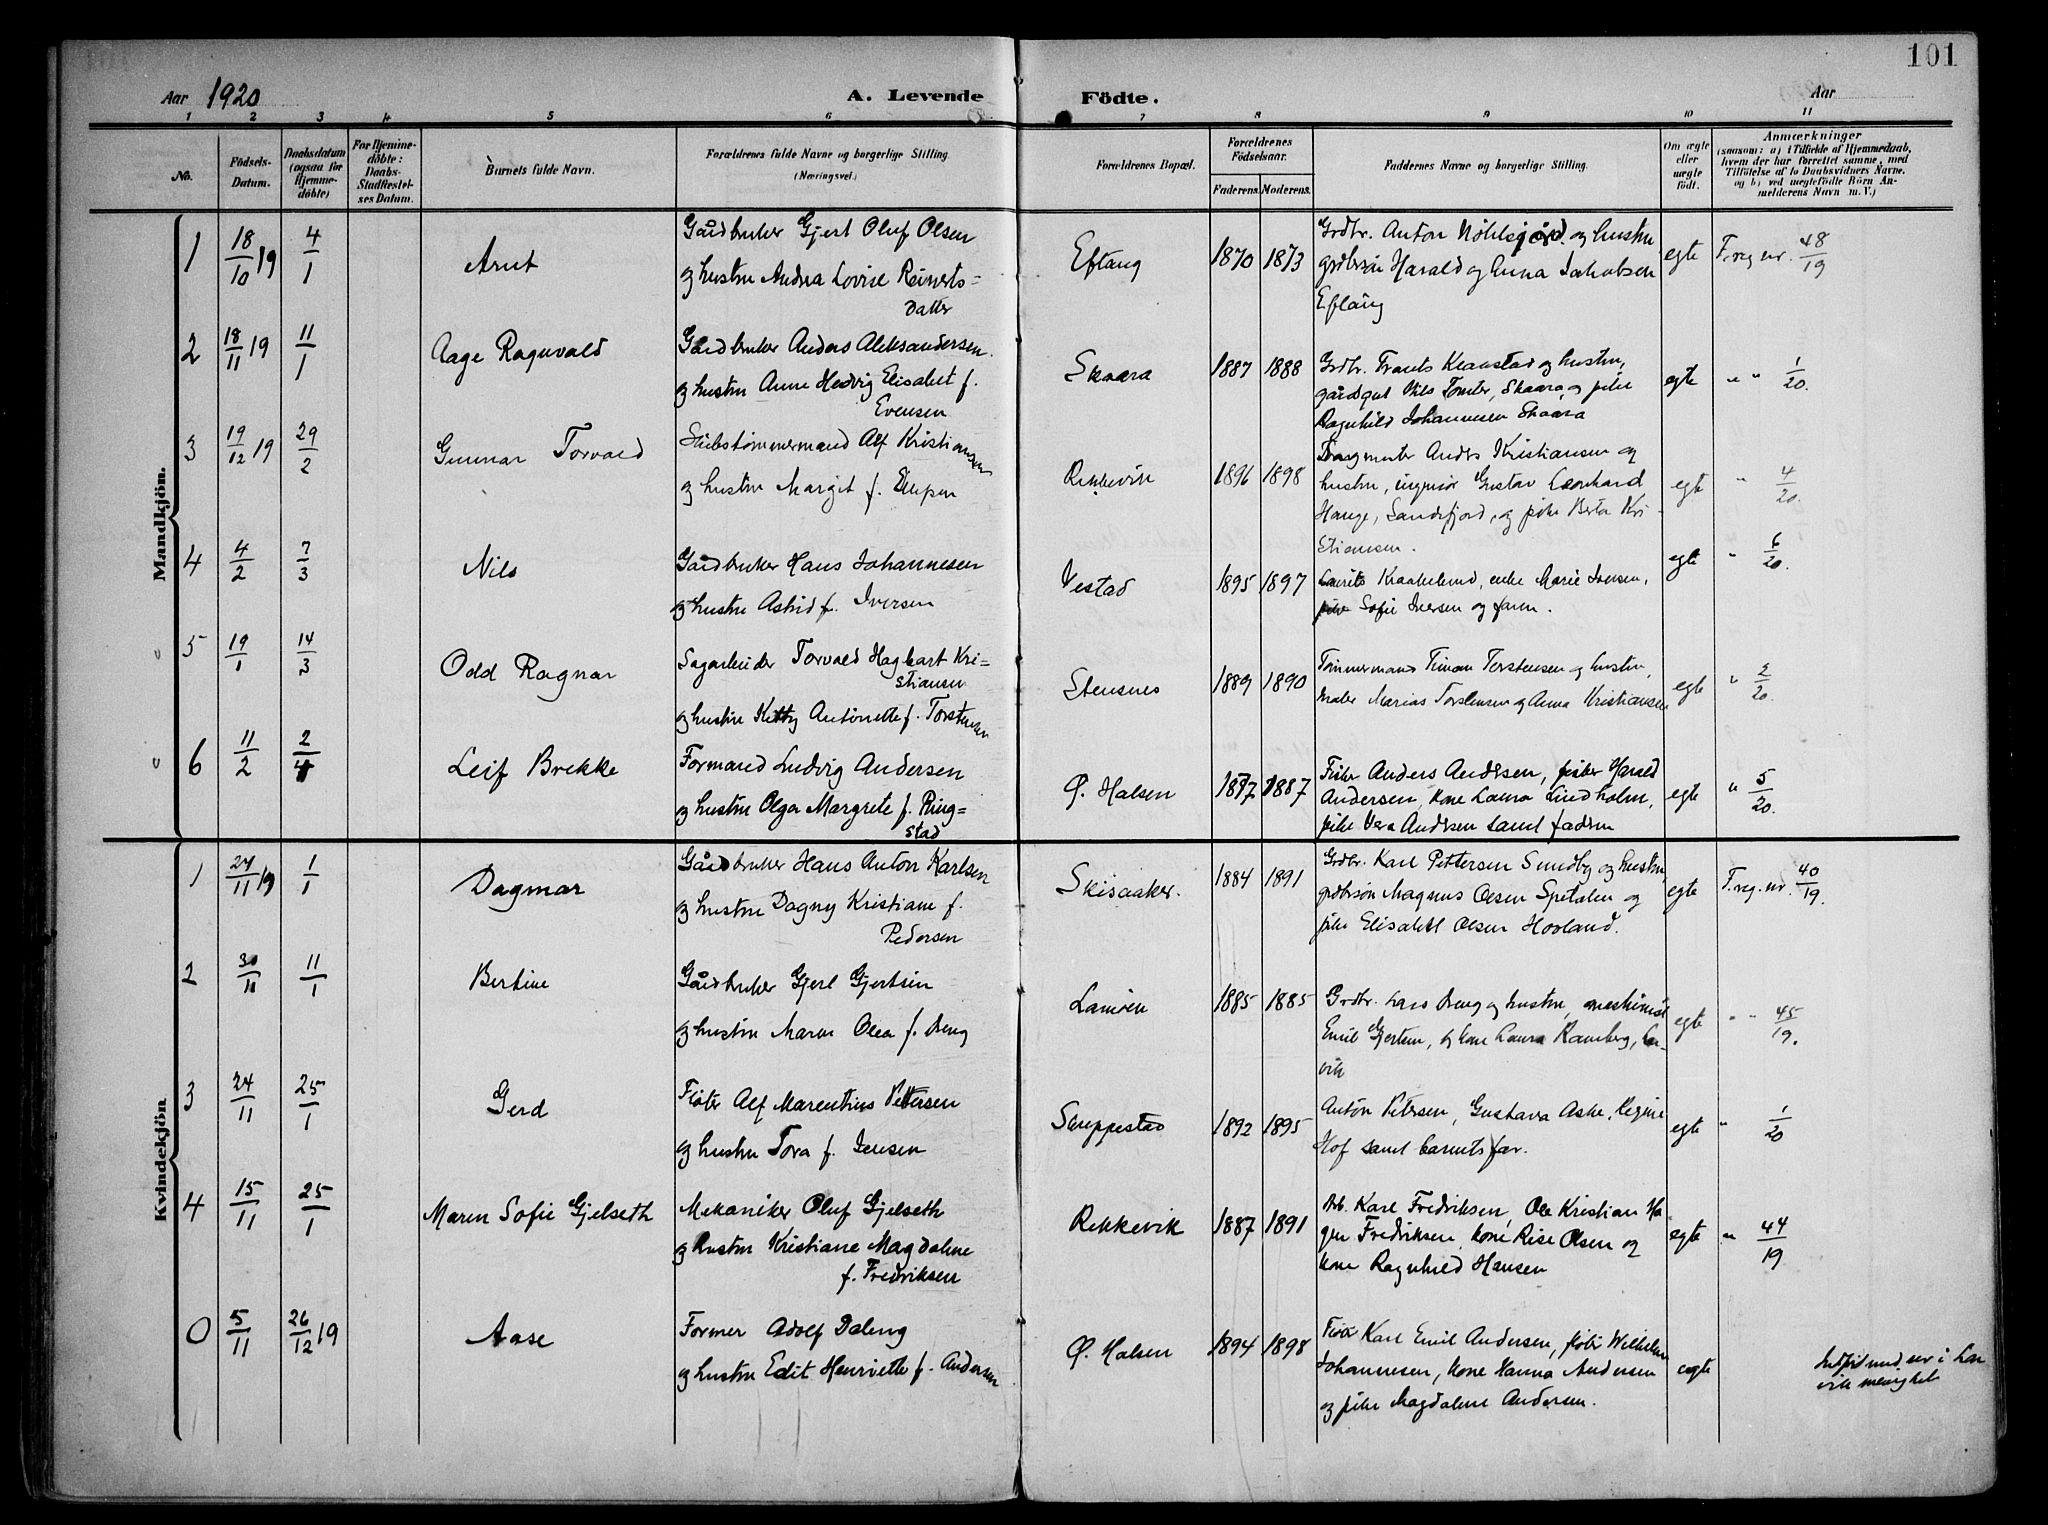 101
Aar 1920 A. Levende Födte. Aar
1 2 3 4 5 6 7 8 9 10 11
No.
Födsels-Datum.
Daabsdatum (ogsaa for Hjemmedöbte)
For Hjemmedöbte: Daabs-Stadfæstelses Datum.
Barnets fulde Navn.
Forældrenes fulde Navne og borgerlige Stilling. (Næringsvei.)
Forældrenes Bopæl.
Forældrenes Födselsaar.
Faderens. Moderens.
Faddernes Navne og borgerlige Stilling.
Om ægte eller uægte födt.
Anmærkninger
(saasom: a) i Tilfælde af Hjemmedaab, hvem der har forrettet samme, med Tilföielse af to Daabsvidners Navne. og b) ved uægtefödte Börn Anmelderens Navn m. V.)
Mandkjön.
1 18/10 19 4/1 Arnt
Gårdbruker Gjert Oluf Olsen
og hustru Andrea Lovise Reinerts-
datter
Eftang 1870 1873
Grdbr. Anton Nöhlsgård og hustru
grdbrsøn Harald og Anna Jakobsen
Eftang
egte F. reg nr. 48/19
2 18/11 19 11/1 Aage Ragnvald
Gårdbruker Anders Aleksandersen
og hustru Anne Hedvig Elisabet f.
Evensen
Skaara 1887 1888
Grdbr. Frants Klanstad og hustru,
gårdsgut Nils Tomter, Skaara, og pike
Ragnhild Johannesen Skaara
egte " " 1/20.
3 19/12 19 29/2 Gunnar Torvald
Skibstømmermand Alf Kristiansen
og hustru Margit f. Ellefsen
Rekkevik 1896 1898
Anders Kristiansen og
hustru, ingeniør Gustav Leonhard
Hauge, Sandefjord, og pike Berta Kri-
stiansen.
egte " 4/20.
4 4/2 7/3 Nils
Gårdbruker Hans Johannesen
og hustru Astrid f. Iversen
Vestad 1895 1897
Laurits Kraakelund, enke Marie Iversen,
pike Sofie Iversen og faren.
egte " 6/20.
5 19/1 14/3 Odd Ragnar
Sagarbeider Torvald Hagbart Kri-
stiansen
og hustru Kitty Antonette f. Torstensen
Stensnes 1889 1890
Tømmermand Timan Torstensen og hustru,
maler Marius Torstensen og Anna Kristiansen
egte " 2/20.
6 11/2 2/4 Leif Brekke
Formand Ludvig Andersen
og hustru Olga Margrete f. Ring-
stad
Ø. Halsen 1887 1887
Fisker Anders Andersen, fisker Harald
Andersen, kone Laura Lindholm,
pike Vera Andersen samt fadern
egte " 5/20.
Kvindekjön
1 27/11 19 1/1 Dagmar
Gårdbruker Hans Anton Karlsen
og hustru Dagny Kristiane f.
Pedersen
Skisaaker. 1884 1891
Grdbr. Karl Pettersen Sundby og hustru,
grdbrsøn Magnus Olsen Spetalen og
pike Elisabet Olsen Hovland.
egte F. reg. nr. 40/19.
2 30/11 11/1 Bertine
Gårdbruker Gjert Gjertsen
og hustru Maren Olea f. Breng
Lamøen 1885 1885
Grdbr. Lars Breng og hustru, maskinist
Emil Gjertsen, og kone Laura Ramberg, Lar-
vik
egte " " 45/19.
3 24/11 25/1 Gerd
Fisker Alf Marentius Pettersen
og hustru Tora f. Jensen
Snippestad 1892 1895
Anton Petersen, Gustava Aske, Regine
Hof samt barnets far.
egte " 1/20
4 15/11 25/1 Maren Sofie Gjelseth
Mekaniker Oluf Gjelseth
og hustru Kristiane Magdalene
f. Fredriksen
Rekkevik 1887 1891
Arb. Karl Fredriksen, Ole Kristian Ha
gen Fredriksen, kone Rise Olsen og
kone Ragnhild Hansen
egte " 44/19
0 5/11 26/12 19 Aase
Former Adolf Daleng
og hustru Edit Henriette f. Andersen
Ø. Halsen 1894 1898
Fisker Karl Emil Andersen, fisker Wilhelm
Johannesen, kone Hanna Andersen
og pike Magdalene Andersen.
egte
i Lar
vik menighet